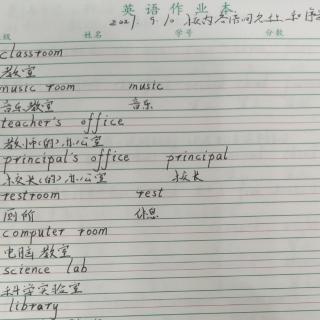 英语作业本
班级 姓名 学号 分数
2021. 9. 10. 校内英语词
classroom
教室
music room music
音乐教室 音乐
teacher's office
教师(的)办公室
principal's office principal
校长(的)办公室 校长
restroom rest
厕所 休息
computer room
电脑教室
science lab
科学实验室
library